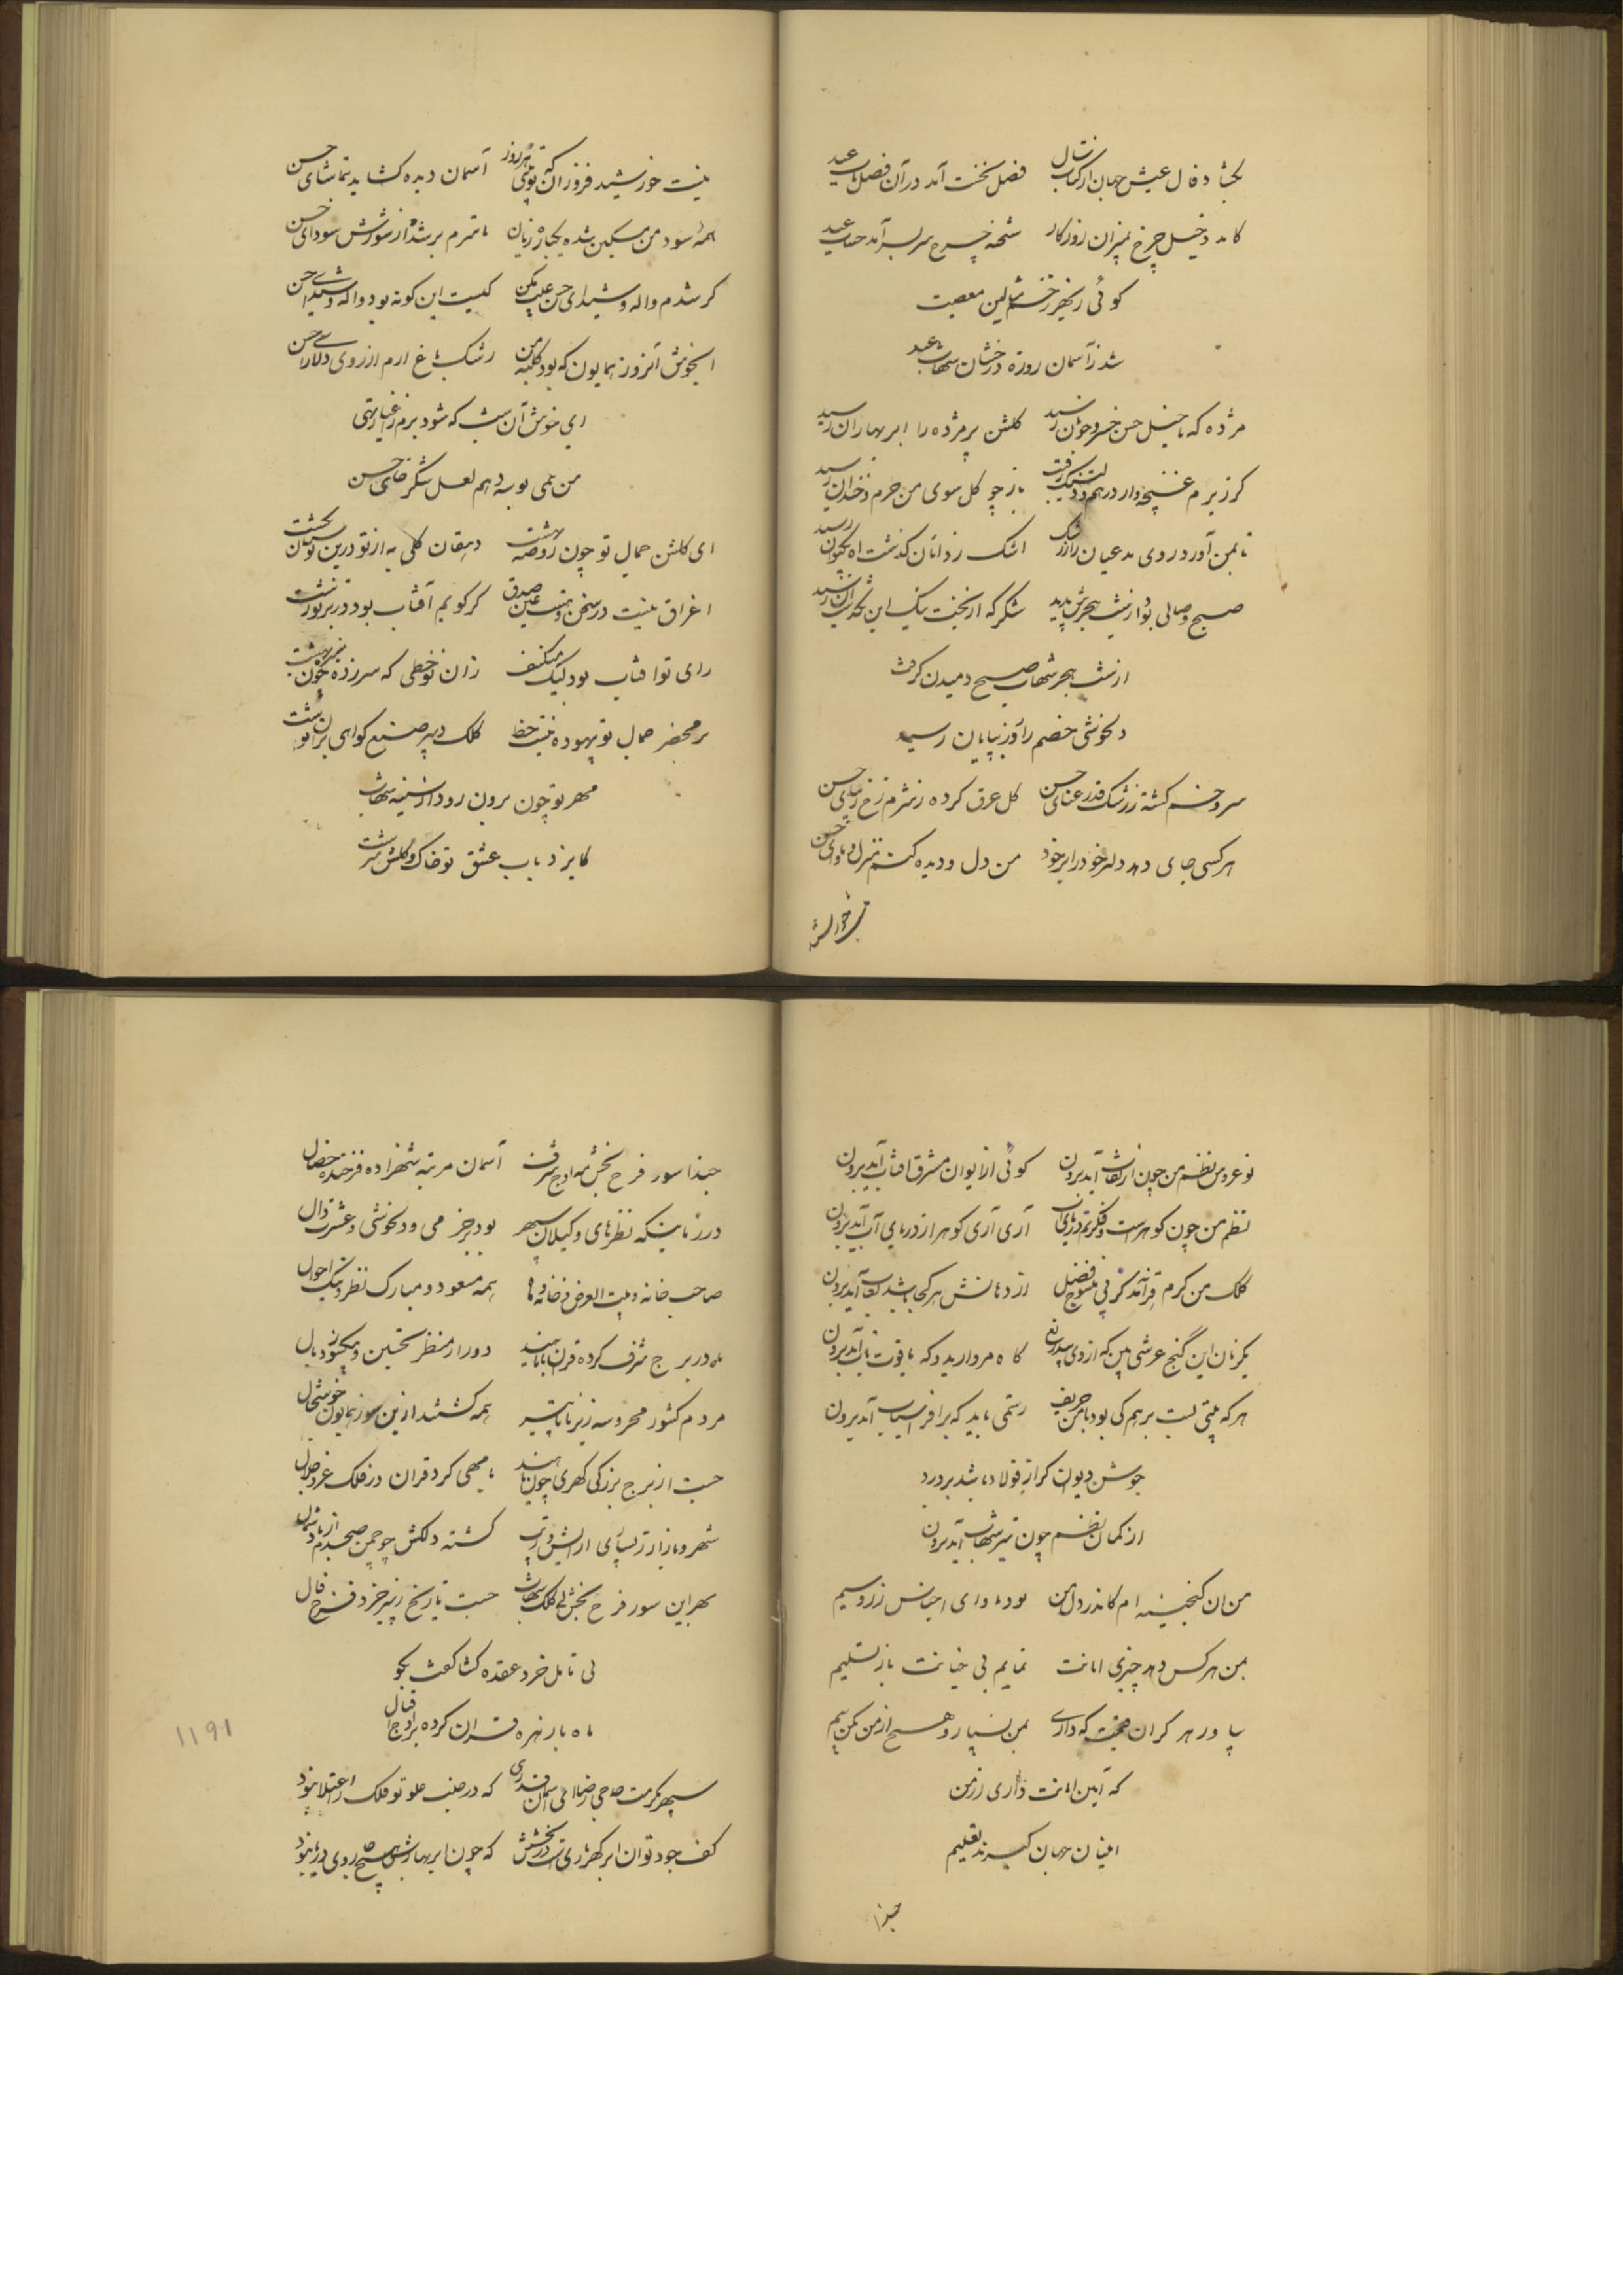 بگشاد فال عیش جهان از کتاب سال فصل نخست آمد در آن فصل باب عید
کامد دخیل چرخ بمیزان روزگار شحنه چرخ سر بسر آمد حساب عید
گوئی رخش
شد ز آسمان روزه درخشان شهاب عید
مژده که با خیل حسن خسرو خوبان رسید گلشن پژمرده را ابر بهاران رسید
گر ز برم غنچه‌وار درهم و دلتنگ رفت باز چو گل سوی من خرم و خندان رسید
تا بمن آورد روی مدعیان را ز رشک اشک ز دامان گذشت آه بکیوان رسید
صبح وصالی بود از شب هجرش پدید شکر که از بخت نیک این
از شب هجر شهاب صبح دمیدن گرفت
دلخوشی خصم را روز بپایان رسید
سرو خم گشته ز رشک قد رعنای حسن گل عرق کرده ز شرم رخ زیبای حسن
هر کسی جای دهد دلبر خود را بر خود من دل و دیده کنم منزل و ماوای حسن
نیست خورشید
نیست خورشید فروزان که تو بینی هر روز آسمان دیده گشاید بتماشای حسن
همه سود من مسکین شده یکباره زیان تا سرم پر شده از شورش سودای حسن
گر شدم واله و شیدای حسن عیب مکن کیست این گونه بود واله و شیدای حسن
ایخوش آنروز همایون که بود کلبه من رشک باغ ارم از روی دلارای حسن
ای خوش آن شب که شود بزم ز اغیار تهی
من همی بوسه دهم لعل شکرخای حسن
ای گلشن جمال تو چون روضه بهشت دهقان گلی به از تو درین بوستان نکشت
اغراق نیست در سخن و هست عین صدق گر گویم آفتاب بود در برتو زشت
رای تو آفتاب بود لیک منکسف زان نوخطی که سر زده چون
بر محضر جمال تو بیهوده نیست خط کلک دبیر صنع گواهی بر آن نوشت
مهر تو چون برون رود از سینه شهاب
کایزد بآب عشق تو خاک و گلش سرشت
نوعروس نظم من چون از نقاب آید برون گوئی از ایوان مشرق آفتاب آید برون
نظم من چون گوهر است و فکرتم دریای آن آری آری گوهر از دریای آب آید برون
کلک من کرم از دهانش هر کجا باشد لعاب آید برون
یکزمان این گنج عرشی بین که از وی بیدریغ گاه مروارید و گه یاقوت ناب آید برون
هر که بیتی بست بر هم کی بود با من حریف رستمی باید که بر افراسیاب آید برون
جوشن دیوان گر از فولاد باشد بر درد
از کمان نظم چون تیر شهاب آید برون
من آن گنجینه‌ام کاندر دل من بود ماوای اجناس زر و سیم
بمن هر کس دهد چیزی امانت نمایم بی خیانت باز تسلیم
بیاور هر گران جنست که داری بمن بسپار و هیچ از من مکن بیم
که آیین امانت داری از من
امینان جهان گیرند تعلیم
حبذا
حبذا سور فرح بخش مه اوج شرف آسمان مرتبه شهزاده فرخنده خصال
در زمانیکه نظرهای وکیلان سپهر بود جز می و دلخوشی و عشرت دال
صاحب خانه و بیت العرض و خانه‌ها همه مسعود و مبارک نظر و نیک احوال
ماه در برج شرف کرده قران با ناهید دور از منظر تحسین و
مردم کشور محروسه ز برنا تا پیر همه گشتند ازین سور همایون خوشحال
جست از برج بزرگی گهری چون ناهید با مهی کرد قران در فلک عز و جلال
شهر و بازار ز آرایش گشته دلکش چو چمن صبحدم از باد شمال
بهر این سور فرح بخش نی کلک شهاب جست تاریخ ز پیر خرد فرخ فال
بی تامل خرد عقده گشا گفت بگو
ماه با زهره قران کرده بر اوج اقبال
۱۱۹۱
سپهر مکرمت حاجی رضا ای آسمان قدری که در جنب علو تو فلک را اعتلا نبود
کف جود تو آن ابر گهرباری‌ست در بخشش که چون ابر بهارش هیچ روی در